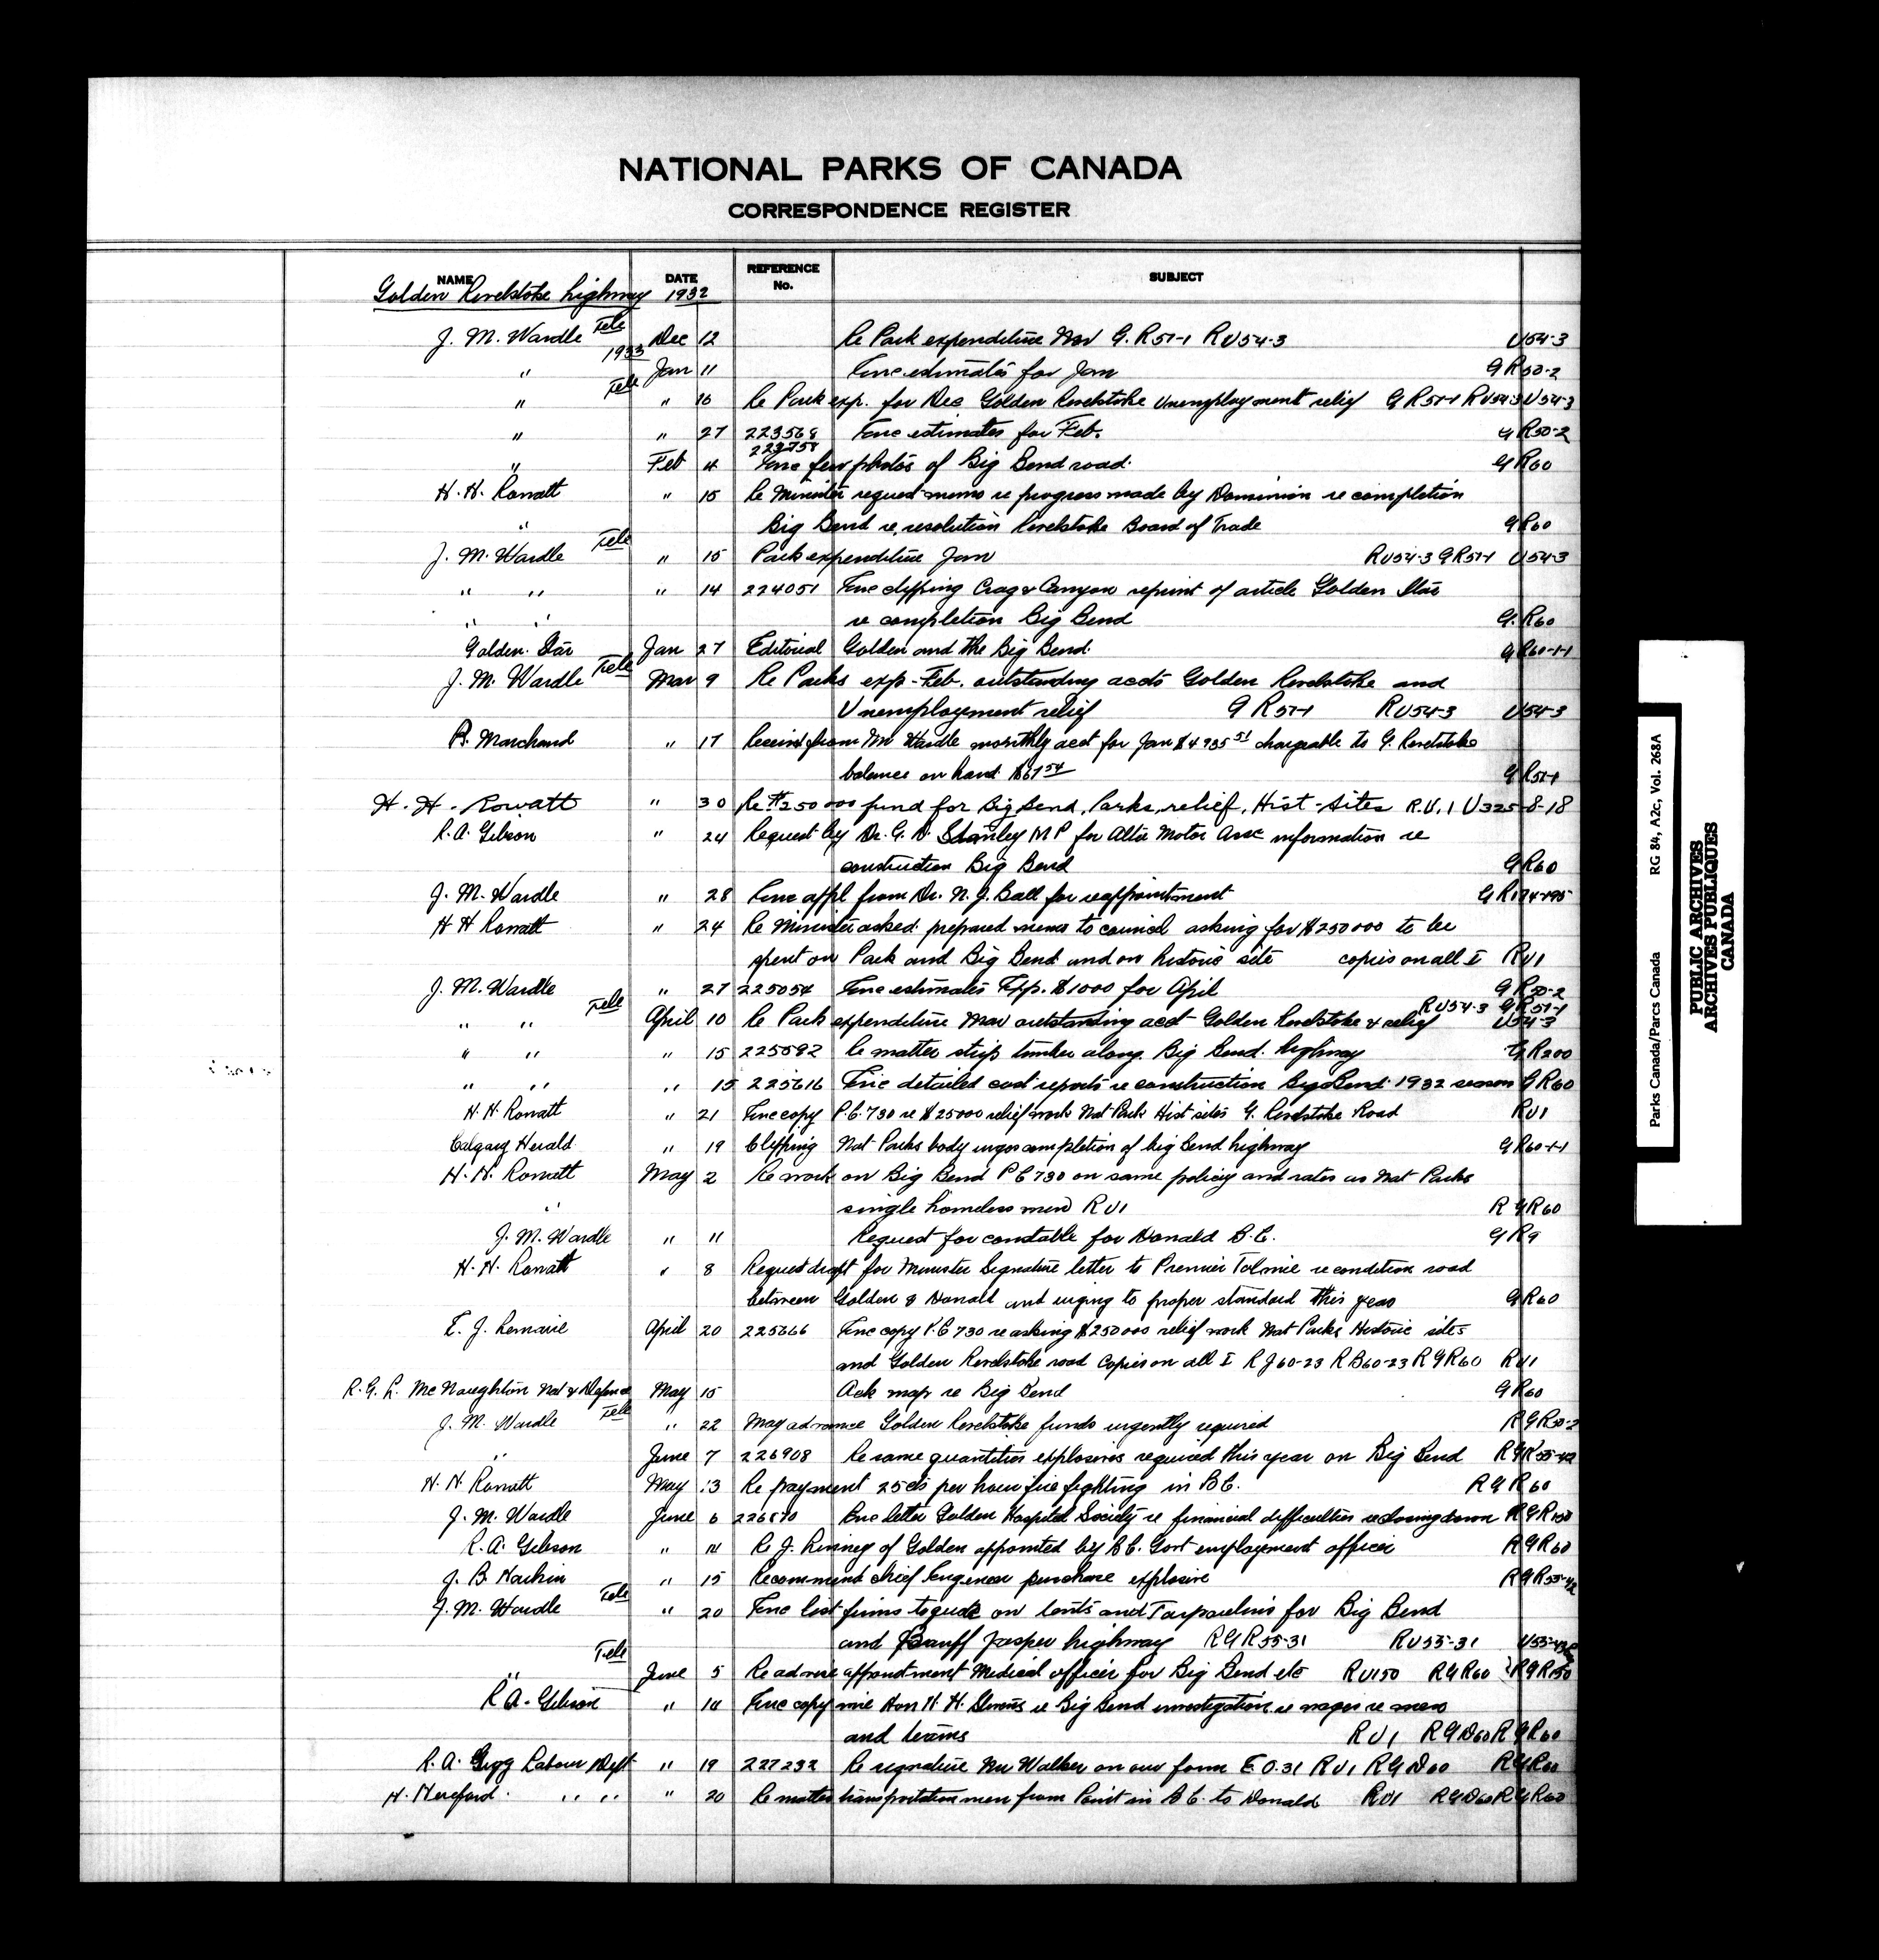 NATIONAL PARKS OF CANADA
CORRESPONDENCE REGISTER
NAME DATE REFERENCE No. SUBJECT
Golden Revelstoke highway 1932
J. M. Wardle Tele Dec 12 Re Park expenditure Nov G. R51-1 RU54-3 U54-3
1933
" Jan 11 Enc estimates for Jan GR50-2
" Tele " 16 Re Park exp. for Dec Golden Revelstoke Unemployment relief GR51-1 RU54-3 U54-3
" " 27 223568 Enc estimates for Feb. GR50-2
" Feb 4 223758 Enc few photos of Big Bend road. GR60
H. H. Rowatt " 15 Re Minister request memo re progress made by Dominion re completion
" Big Bend re resolution Revelstoke Board of Trade GR60
J. M. Wardle Tele " 15 Park expenditure Jan RU54-3 GR51-1 U54-3
" " " 14 224051 Enc clipping Crag & Canyon reprint of article Golden Star
" " re completion Big Bend G.R60
Golden Star Jan 27 Editorial Golden and the Big Bend. GR60-1-1
J. M. Wardle Tele Mar 9 Re Parks exp-Feb. outstanding accts Golden Revelstoke and
Unemployment relief GR51-1 RU54-3 U54-3
R. Marchand " 17 Received from Mr Wardle monthly acct for Jan $4935 51 chargeable to G. Revelstoke
balance on hand $67 54 GR51-1
H. H. Rowatt " 30 Re $250 000 fund for Big Bend, Parks, relief, Hist-Sites R.U.1 U325-8-18
R. A. Gibson " 24 Request by Dr. G. D. Stanley MP for Alta Motor Assc information re
construction Big Bend GR60
J. M. Wardle " 28 Enc appl from Dr. N. J. Ball for reappointment GR174-195
H H Rowatt " 24 Re Minister asked prepared memo to council asking for $250000 to be
spent on Park and Big Bend and on historic site copies on all I RU1
J. M. Wardle " 27 225054 Enc estimates Exp. $1000 for April GR50-2
" " Tele April 10 Re Park expenditure Mar outstanding acct Golden Revelstoke & relief RU54-3 GR51-1 U54-3
" " " 15 225592 Re matter strip timber along Big Bend highway GR200
" " " 15 225616 Enc detailed cost reports re construction Big Bend 1932 season GR60
H. H. Rowatt " 21 Enc copy P.C. 730 re $25000 relief work Nat Park Hist sites G. Revelstoke Road RU1
Calgary Herald " 19 Clipping Nat Parks body urges completion of big Bend highway GR60-1-1
H. H. Rowatt May 2 Re work on Big Bend PC 730 on same policy and rates as Nat Parks
" single homeless men RU1 RGR60
J. M. Wardle " 11 Request for constable for Donald B.C. GR9
H. H. Rowatt " 8 Request draft for Minister Signature letter to Premier Tolmie re condition road
between Golden & Donald and urging to proper standard this year GR60
E. J. Lemaire April 20 225666 Enc copy P.C 730 re asking $250000 relief work Nat Parks Historic sites
and Golden Revelstoke road Copies on all I RJ60-23 RB60-23 RGR60 RU1
R. G. L. McNaughton Nat & Defence May 15 Ack map re Big Bend GR60
J. M. Wardle Tele " 22 May advance Golden Revelstoke funds urgently required RGR50-2
" June 7 226908 Re same quantities explosives required this year on Big Bend RGR55-42
H. H. Rowatt May 13 Re payment 25cts per hour fire fighting in B.C. RGR60
J. M. Wardle June 6 Enc letter Golden Hospital Society re financial difficulties re closing down RGR150
R. A. Gibson " 14 Re J. Kinney of Golden appointed by B.C. Govt employment officer RGR60
J. B. Harkin " 15 Recommend chief Engineer purchase explosive RGR55-42
J. M. Wardle Tele " 20 Enc list firms to quote on tents and Tarpaulins for Big Bend
and Banff Jasper highway RGR55-31 RU55-31
" Tele June 5 Re advise appointment Medical officer for Big Bend etc RU150 RGR60 RGR150
R A. Gibson " 14 Enc copy wire Hon H. H. Stevens re Big Bend investigation re wages re men
and teams RU1 RGD60 RGR60
R. A. Grigg Labour Dept " 19 227232 Re signature Mr Walker on our form E.O.31 RU1 RGD60 RGR60
H. Hereford " " " 20 Re matter transportation men from Point in B.C. to Donald RU1 RGD60 RGR60
Parks Canada/Parcs Canada RG 84, A2c, Vol. 268A
PUBLIC ARCHIVES
ARCHIVES PUBLIQUES
CANADA